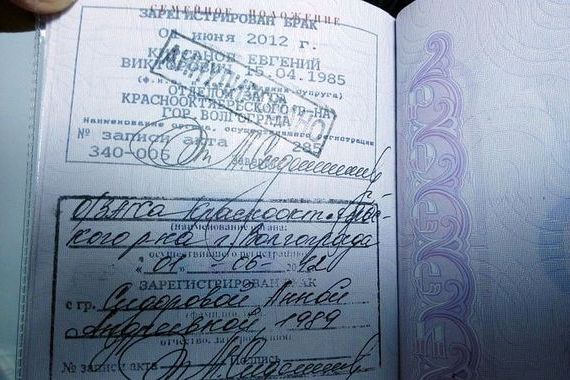 СЕМЕЙНОЕ ПОЛОЖЕНИЕ
ЗАРЕГИСТРИРОВАН БРАК
01 июня 2012 г.
ЕВГЕНИЙ
15.04.1985
ОТДЕЛОМ
КРАСНООКТЯБРЬСКОГО Р-НА
ГОР. ВОЛГОГРАДА
наименование органа, осуществившего регистрацию
№ записи акта 285
340-006
О/ЗАГСа Краснооктябрьс-
кого р-на г. Волгограда
(наименование органа,
осуществившего регистрацию)
"01" - 06 - 2012
ЗАРЕГИСТРИРОВАН БРАК
с гр. Сидоровой Анной
Андреевной, 1989
отчество, дата рождения)
№ записи акта Подпись